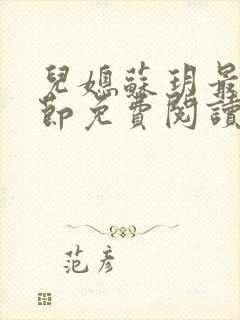 兒媳蘇玥最
節免費閱讀
范彥